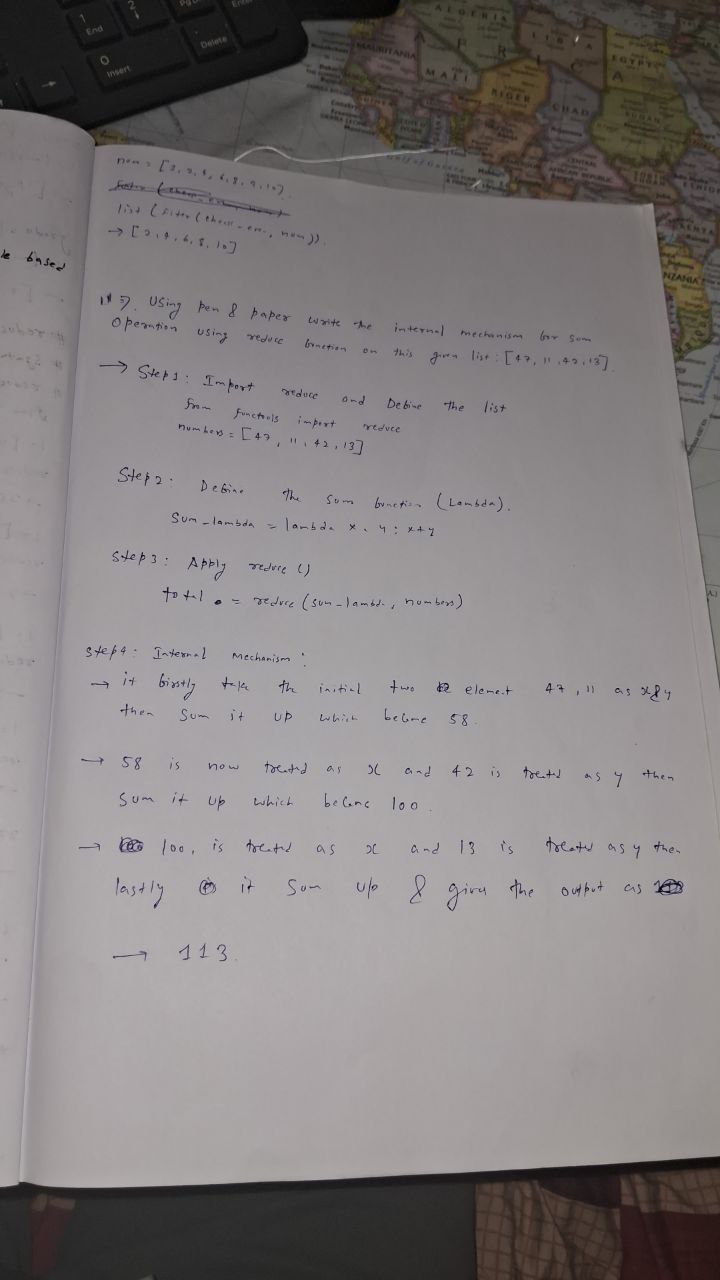 1
End
2
0
Insert
Delete
Enter
ALGERIA
LIBYA
EGYPT
AFRICA
MAURITANIA
MALI
NIGER
CHAD
SUDAN
Gulf of Guinea
CENTRAL
AFRICAN REPUBLIC
KENYA
TANZANIA
le based
num = [2, 3, 4, 6, 8, 9, 10].
list (filter (check-even, num)).
→ [2, 4, 6, 8, 10]
5. Using pen & paper write the internal mechanism for sum
operation using reduce function on this given list: [47, 11, 42, 13].
→ Step 1: Import reduce and Define the list
from functools import reduce
numbers = [47, 11, 42, 13]
Step 2: Define the sum function (Lambda).
Sum-lambda = lambda x, y : x+y
Step 3: Apply reduce ()
total = reduce (sum-lambda, numbers)
Step 4: Internal Mechanism:
→ it firstly take the initial two element 47, 11 as x & y
then sum it up which become 58.
→ 58 is now treated as x and 42 is treated as y then
sum it up which become 100.
→ 100, is treated as x and 13 is treated as y then
lastly it sum up & gives the output as
→ 113.